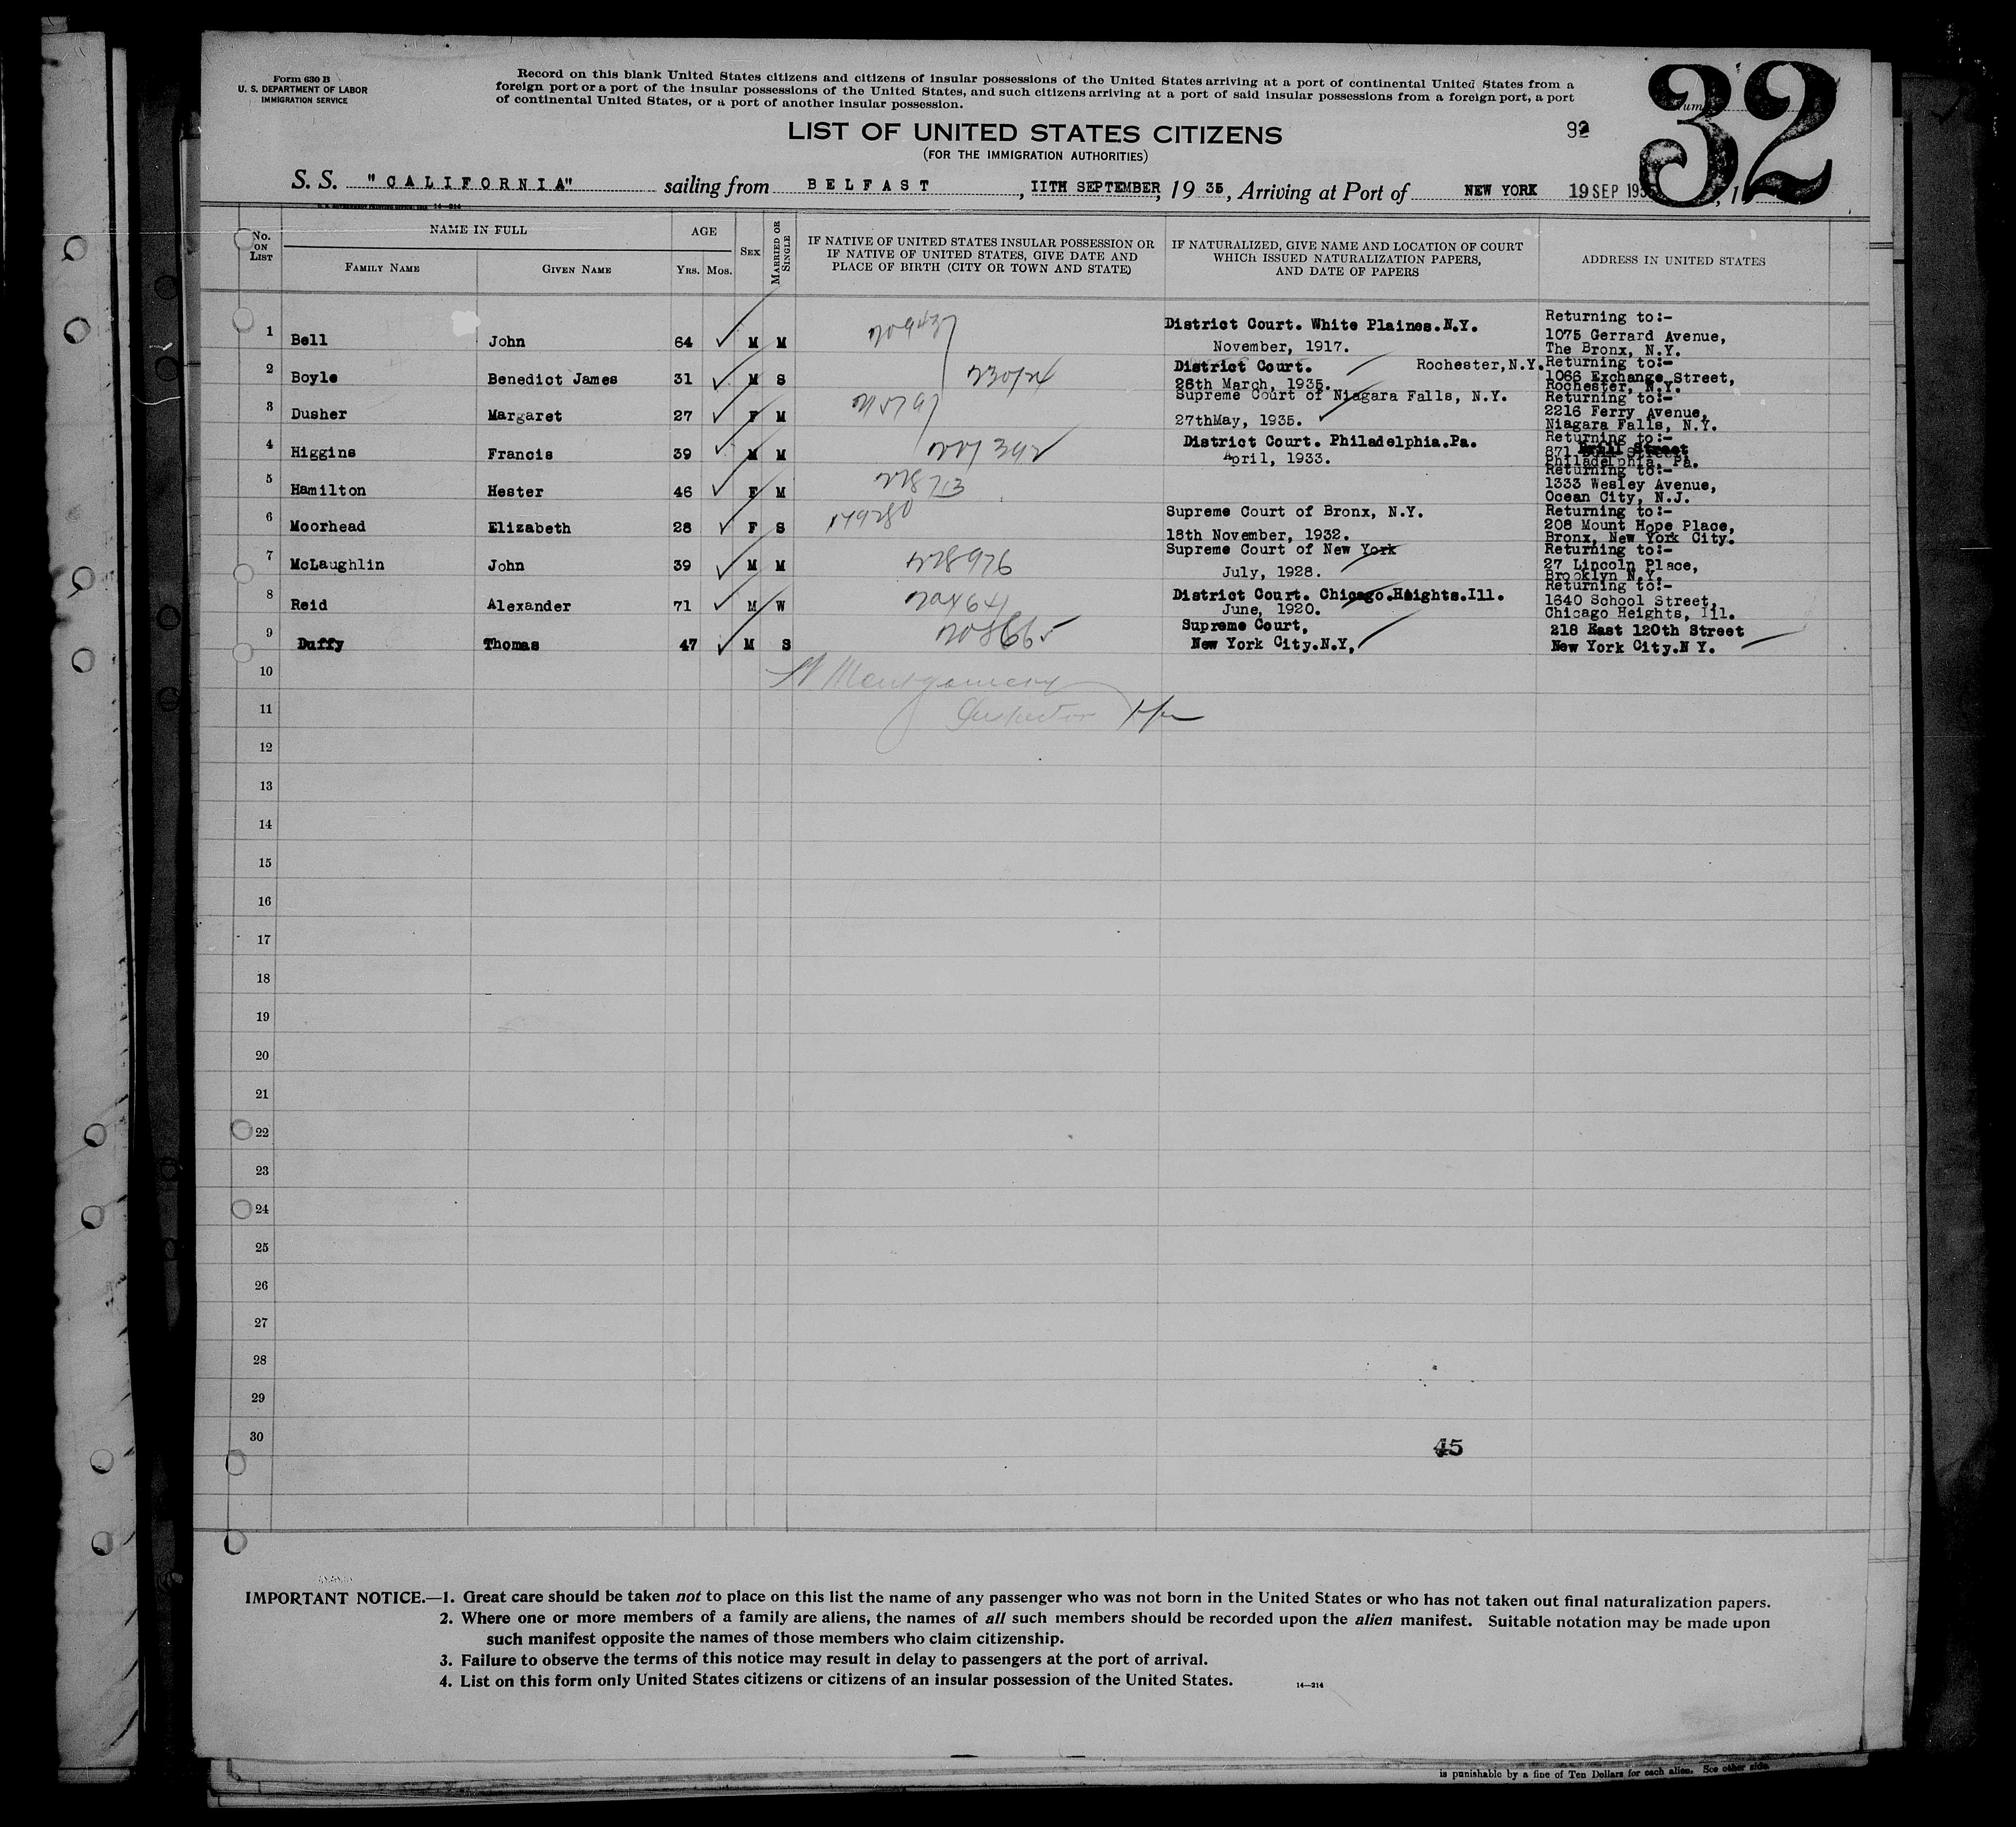 Form 630 B
U. S. DEPARTMENT OF LABOR
IMMIGRATION SERVICE
Record on this blank United States citizens and citizens of insular possessions of the United States arriving at a port of continental United States from a
foreign port or a port of the insular possessions of the United States, and such citizens arriving at a port of said insular possessions from a foreign port, a port
of continental United States, or a port of another insular possession.
32
LIST OF UNITED STATES CITIZENS
(FOR THE IMMIGRATION AUTHORITIES)
S. S. "CALIFORNIA" sailing from BELFAST, IITH SEPTEMBER, 19 35, Arriving at Port of NEW YORK 19 SEP
No. ON LIST
NAME IN FULL
FAMILY NAME GIVEN NAME
AGE
YRS. MOS.
SEX
MARRIED OR SINGLE
IF NATIVE OF UNITED STATES INSULAR POSSESSION OR
IF NATIVE OF UNITED STATES, GIVE DATE AND
PLACE OF BIRTH (CITY OR TOWN AND STATE)
IF NATURALIZED, GIVE NAME AND LOCATION OF COURT
WHICH ISSUED NATURALIZATION PAPERS,
AND DATE OF PAPERS
ADDRESS IN UNITED STATES
1 Bell John 64 M M
District Court. White Plaines.N.Y.
November, 1917.
Returning to:-
1075 Gerrard Avenue,
The Bronx, N.Y.
2 Boyle Benedict James 31 M S 230124
District Court. Rochester,N.Y.
26th March, 1935.
Returning to:-
1066 Exchange Street,
Rochester, N.Y.
3 Dusher Margaret 27 F M
Supreme Court of Niagara Falls, N.Y.
27thMay, 1935.
Returning to:-
2216 Ferry Avenue,
Niagara Falls, N.Y.
4 Higgins Francis 39 M M 221392
District Court. Philadelphia.Pa.
April, 1933.
Returning to:-
871 Street
Philadelphia, Pa.
5 Hamilton Hester 46 F M 228713
Returning to:-
1333 Wesley Avenue,
Ocean City, N.J.
6 Moorhead Elizabeth 28 F S 179280
Supreme Court of Bronx, N.Y.
18th November, 1932.
Returning to:-
208 Mount Hope Place,
Bronx, New York City.
7 McLaughlin John 39 M M 228976
Supreme Court of New York
July, 1928.
Returning to:-
27 Lincoln Place,
Brooklyn N.Y.
8 Reid Alexander 71 M W
District Court. Chicago.Heights.Ill.
June, 1920.
Returning to:-
1640 School Street,
Chicago Heights, Ill.
9 Duffy Thomas 47 M S 208665
Supreme Court,
New York City.N.Y,
218 East 120th Street
New York City.N Y.
10
Montgomery
11
Inspector
12
13
14
15
16
17
18
19
20
21
22
23
24
25
26
27
28
29
30
45
IMPORTANT NOTICE.—1. Great care should be taken not to place on this list the name of any passenger who was not born in the United States or who has not taken out final naturalization papers.
2. Where one or more members of a family are aliens, the names of all such members should be recorded upon the alien manifest. Suitable notation may be made upon
such manifest opposite the names of those members who claim citizenship.
3. Failure to observe the terms of this notice may result in delay to passengers at the port of arrival.
4. List on this form only United States citizens or citizens of an insular possession of the United States.
14—214
is punishable by a fine of Ten Dollars for each alien. See other side.